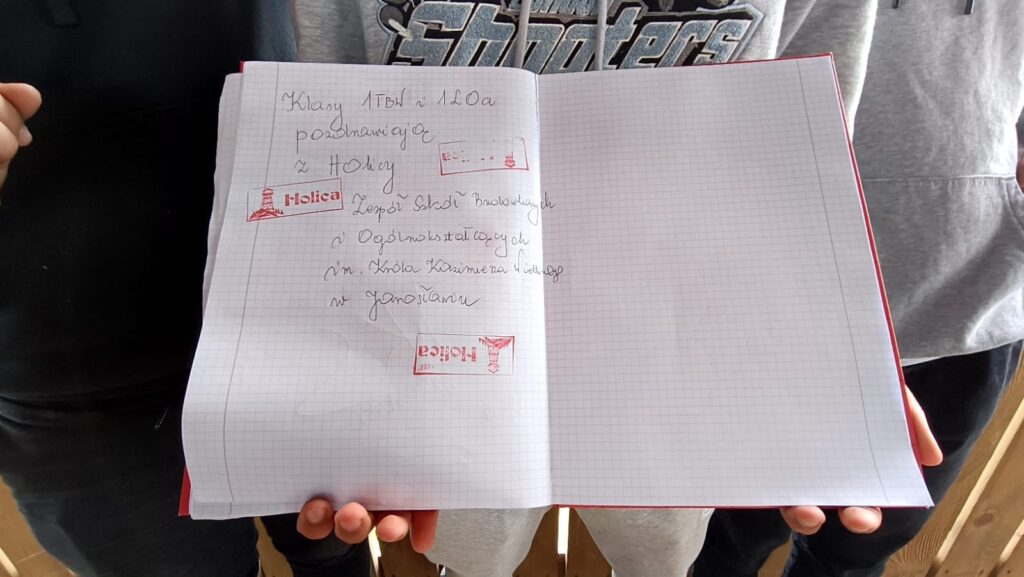 Shooters
Klasy 1TBW i 1LOa
pozdrawiają
z Holicy
Holica
Zespół Szkół Budowlanych
i Ogólnokształcących
im. Króla Kazimierza Wielkiego
w Jarosławiu
Holica